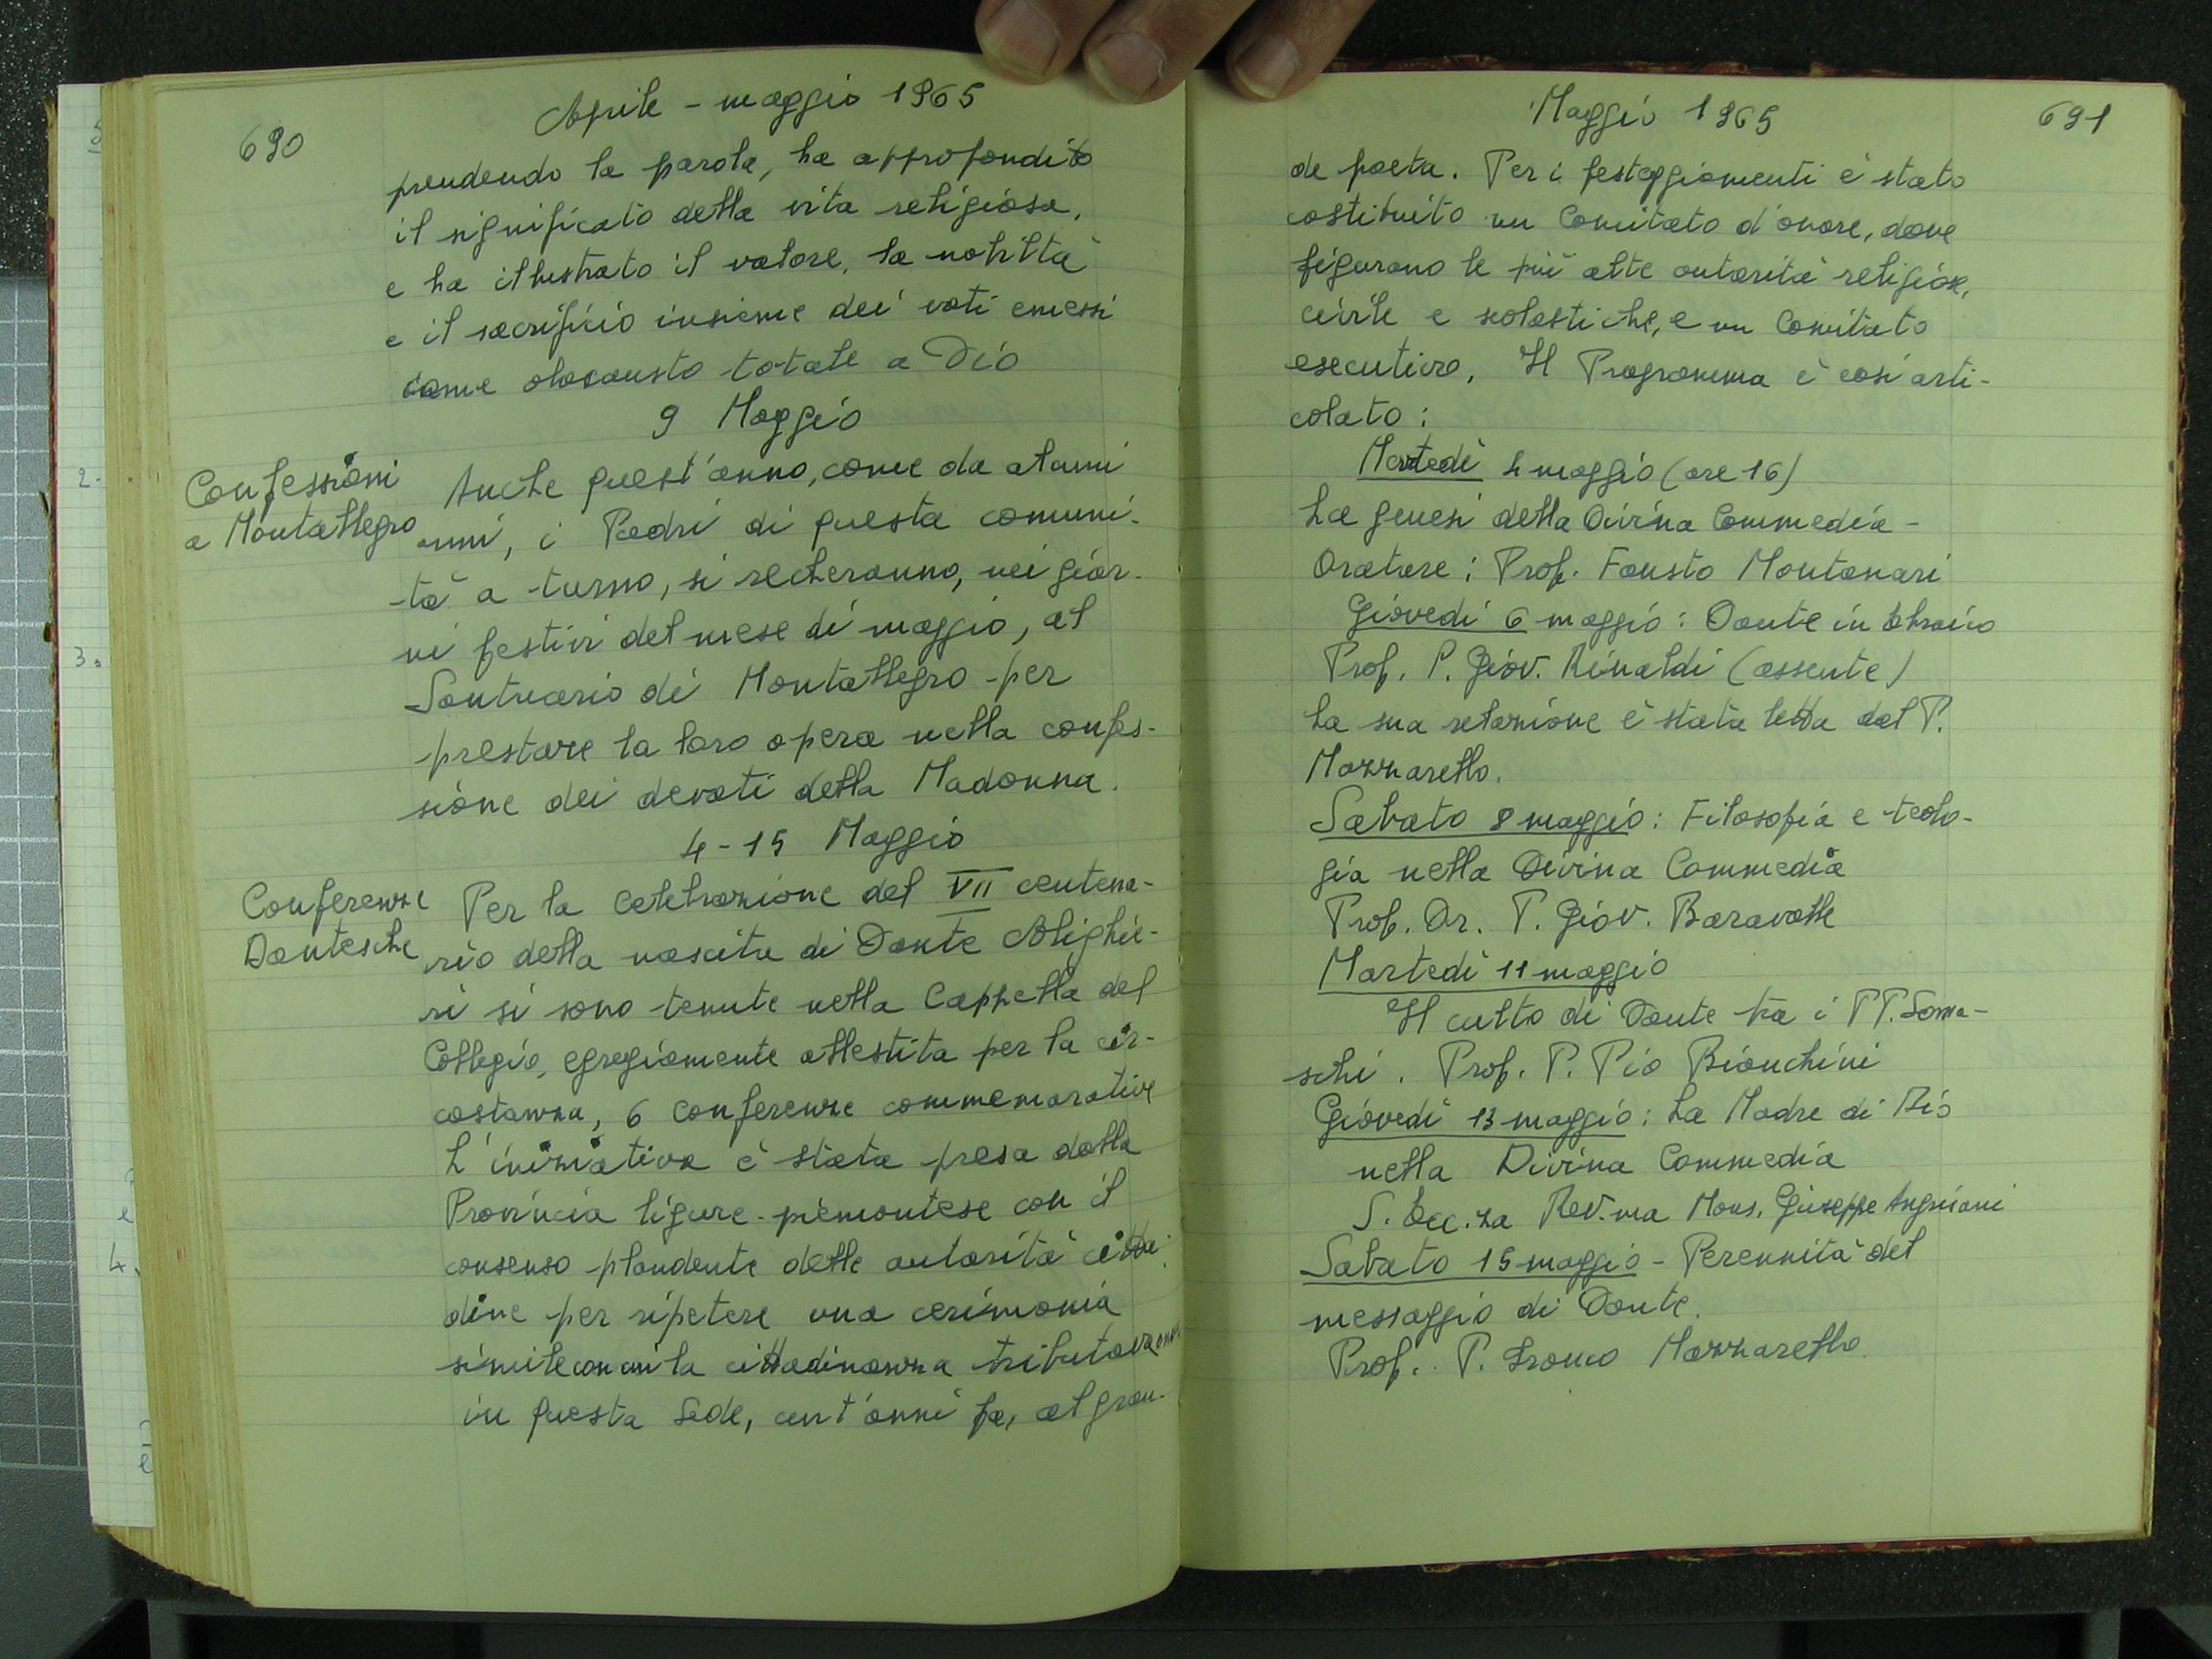 690
Aprile - maggio 1965
prendendo la parola, ha approfondito
il significato della vita religiosa,
e ha illustrato il valore, la nobiltà
e il sacrificio insieme dei voti emessi
come olocausto totale a Dio
9 Maggio
Confessioni
a Montallegro
Anche quest'anno, come da alcuni
anni, i Padri di questa comuni-
tà a turno, si recheranno, nei gior-
ni festivi del mese di maggio, al
Santuario di Montallegro per
prestare la loro opera nella confes-
sione dei devoti della Madonna.
4-15 Maggio
Conferenze
Dantesche
Per la celebrazione del VII centena-
rio della nascita di Dante Alighie-
ri si sono tenute nella Cappella del
Collegio, egregiamente allestita per la cir-
costanza, 6 conferenze commemorative
L'iniziativa è stata presa dalla
Provincia ligure-piemontese con il
consenso plaudente delle autorità citta-
dine per ripetere una cerimonia
simile con cui la cittadinanza tributava
in questa Sede, cent'anni fa, al gran-
Maggio 1965
691
de poeta. Per i festeggiamenti è stato
costituito un Comitato d'onore, dove
figurano le più alte autorità religiose,
civile e scolastiche, e un Comitato
esecutivo. Il Programma è così arti-
colato:
Martedì 4 maggio (ore 16)
La genesi della Divina Commedia -
Oratore: Prof. Fausto Montanari
Giovedì 6 maggio: Dante in ebraico
Prof. P. Giov. Rinaldi (assente)
La sua relazione è stata letta dal P.
Mazzarello.
Sabato 8 maggio: Filosofia e teolo-
gia nella Divina Commedia
Prof. Dr. P. Giov. Baravalle
Martedì 11 maggio
Il culto di Dante tra i PP. Soma-
schi. Prof. P. Pio Bianchini
Giovedì 13 maggio: La Madre di Dio
nella Divina Commedia
S. Ecc.za Rev.ma Mons. Giuseppe Angrisani
Sabato 15 maggio - Perennità del
messaggio di Dante.
Prof. P. Franco Mazzarello.